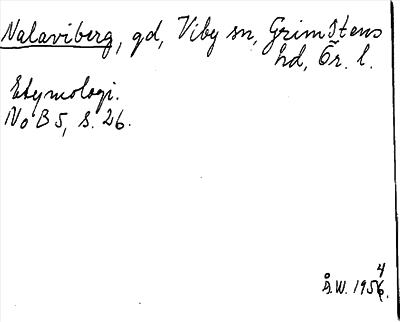 Nalaviberg, gd, Viby sn, Grimstens
hd, Ör. l.
Etymologi.
NoB 5, s. 26.
Å.W. 1954.